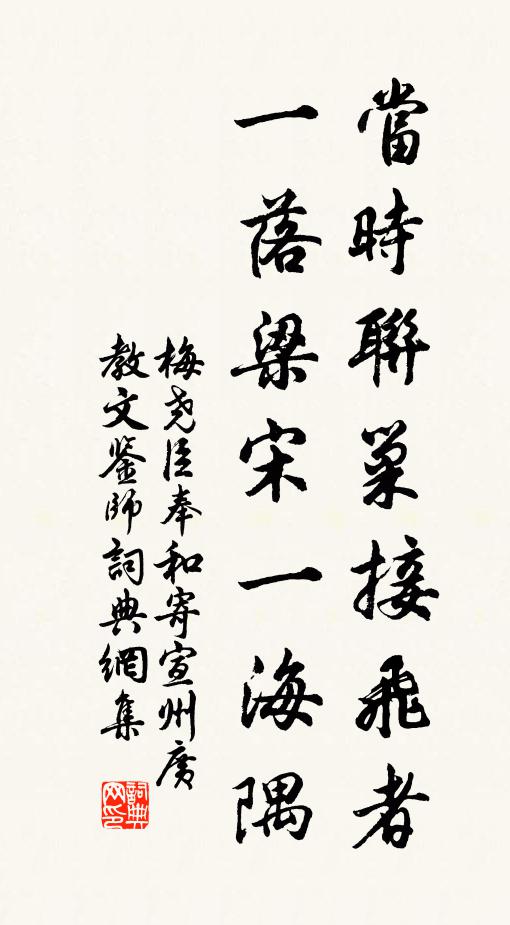 當時聯巢接飛者
一落梁宋一海隅
梅尧臣奉和寄宣州廣
教文鉴師詞典網集
詞典网印